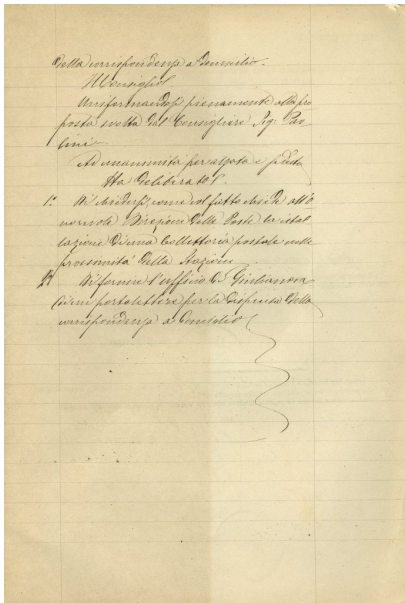 della corrispondenza a domicilio.
Il Consiglio
Uniformandosi pienamente alla pro
posta svolta dal Consigliere Sig.
Ad unanimità per alzata e seduta
Ha deliberato
1º Di chiedersi, come col fatto chiede all'O
norevole Direzione delle Poste la istal
lazione di una Collettoria postale nelle
prossimità della Stazione
2º Di fornire l'ufficio di Giulianova
di un portalettere per la dispensa della
corrispondenza a domicilio